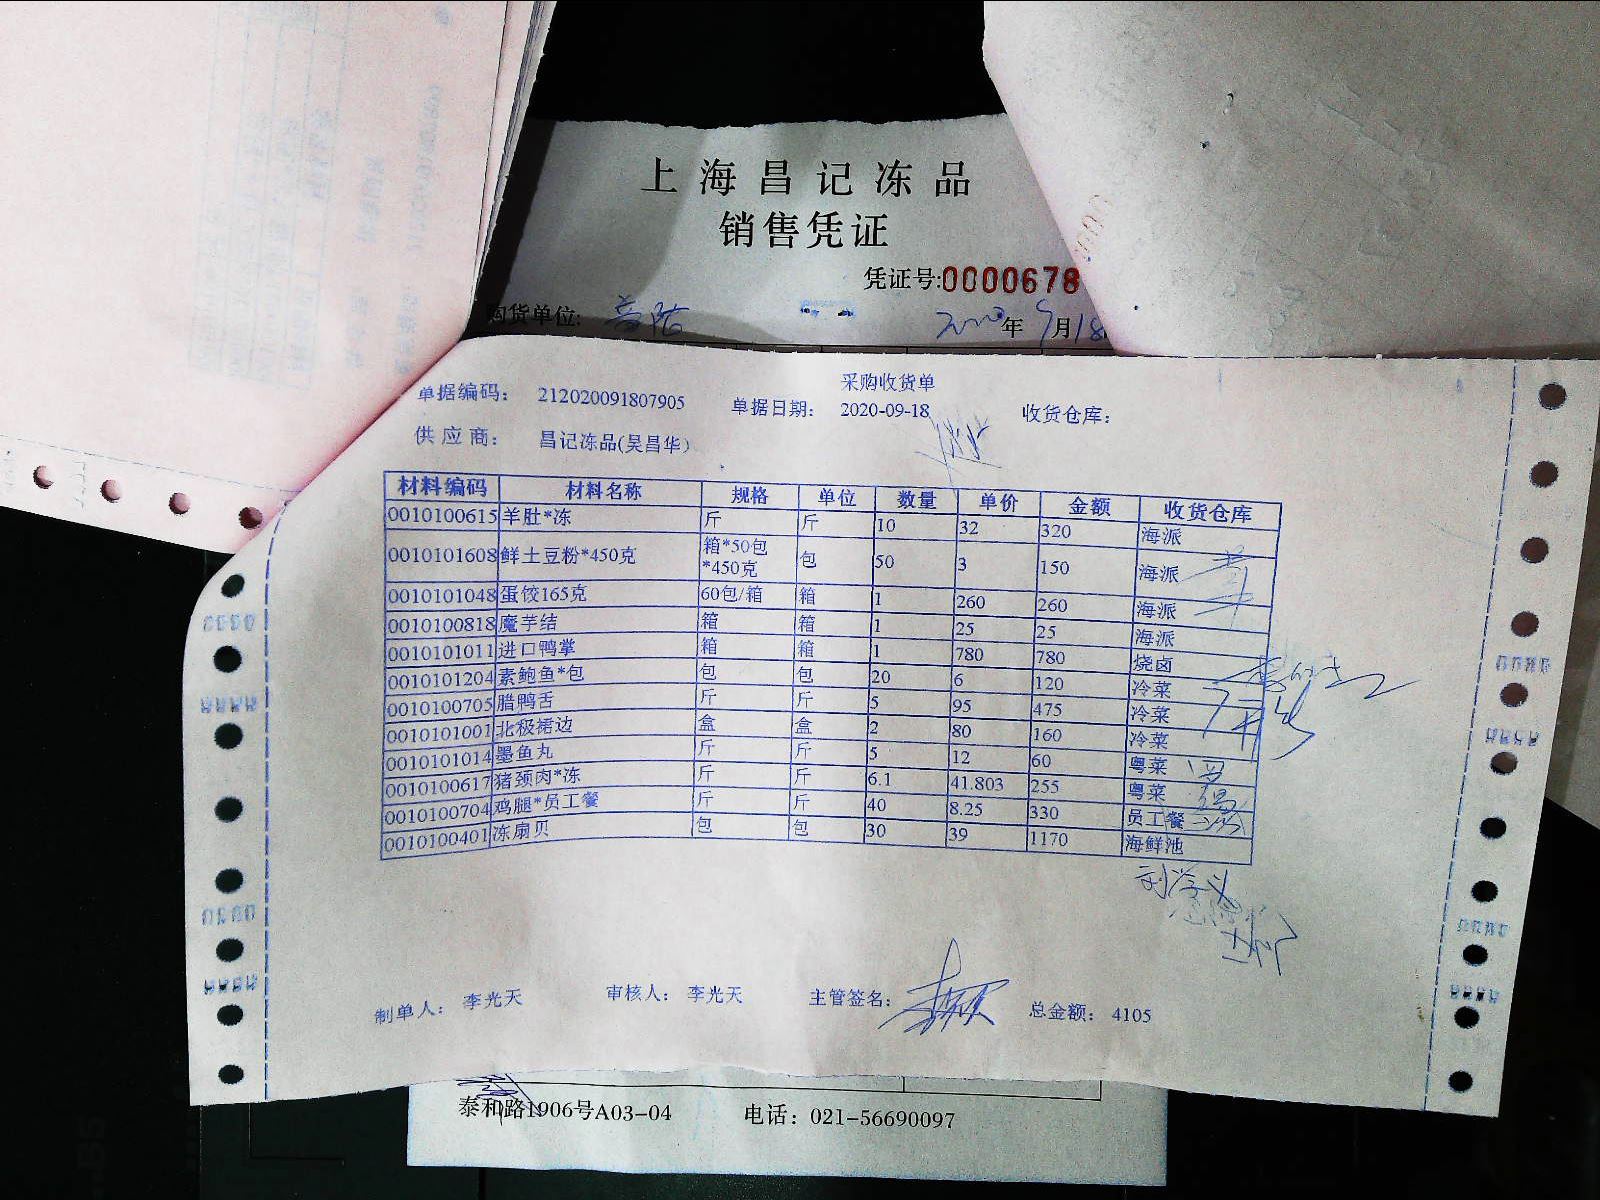 上海昌记冻品
销售凭证
凭证号:0000678
购货单位:
2020年9月18
采购收货单
单据编码: 212020091807905 单据日期: 2020-09-18 收货仓库:
供应商: 昌记冻品(吴昌华)
材料编码 材料名称 规格 单位 数量 单价 金额 收货仓库
0010100615 羊肚*冻 斤 斤 10 32 320 海派
0010101608 鲜土豆粉*450克 箱*50包*450克 包 50 3 150 海派
0010101048 蛋饺165克 60包/箱 箱 1 260 260 海派
0010100818 魔芋结 箱 箱 1 25 25 海派
0010101011 进口鸭掌 箱 箱 1 780 780 烧卤
0010101204 素鲍鱼*包 包 包 20 6 120 冷菜
0010100705 腊鸭舌 斤 斤 5 95 475 冷菜
0010101001 北极裙边 盒 盒 2 80 160 冷菜
0010101014 墨鱼丸 斤 斤 5 12 60 粤菜
0010100617 猪颈肉*冻 斤 斤 6.1 41.803 255 粤菜
0010100704 鸡腿*员工餐 斤 斤 40 8.25 330 员工餐
0010100401 冻扇贝 包 包 30 39 1170 海鲜池
制单人: 李光天 审核人: 李光天 主管签名: 总金额: 4105
泰和路1906号A03-04 电话: 021-56690097